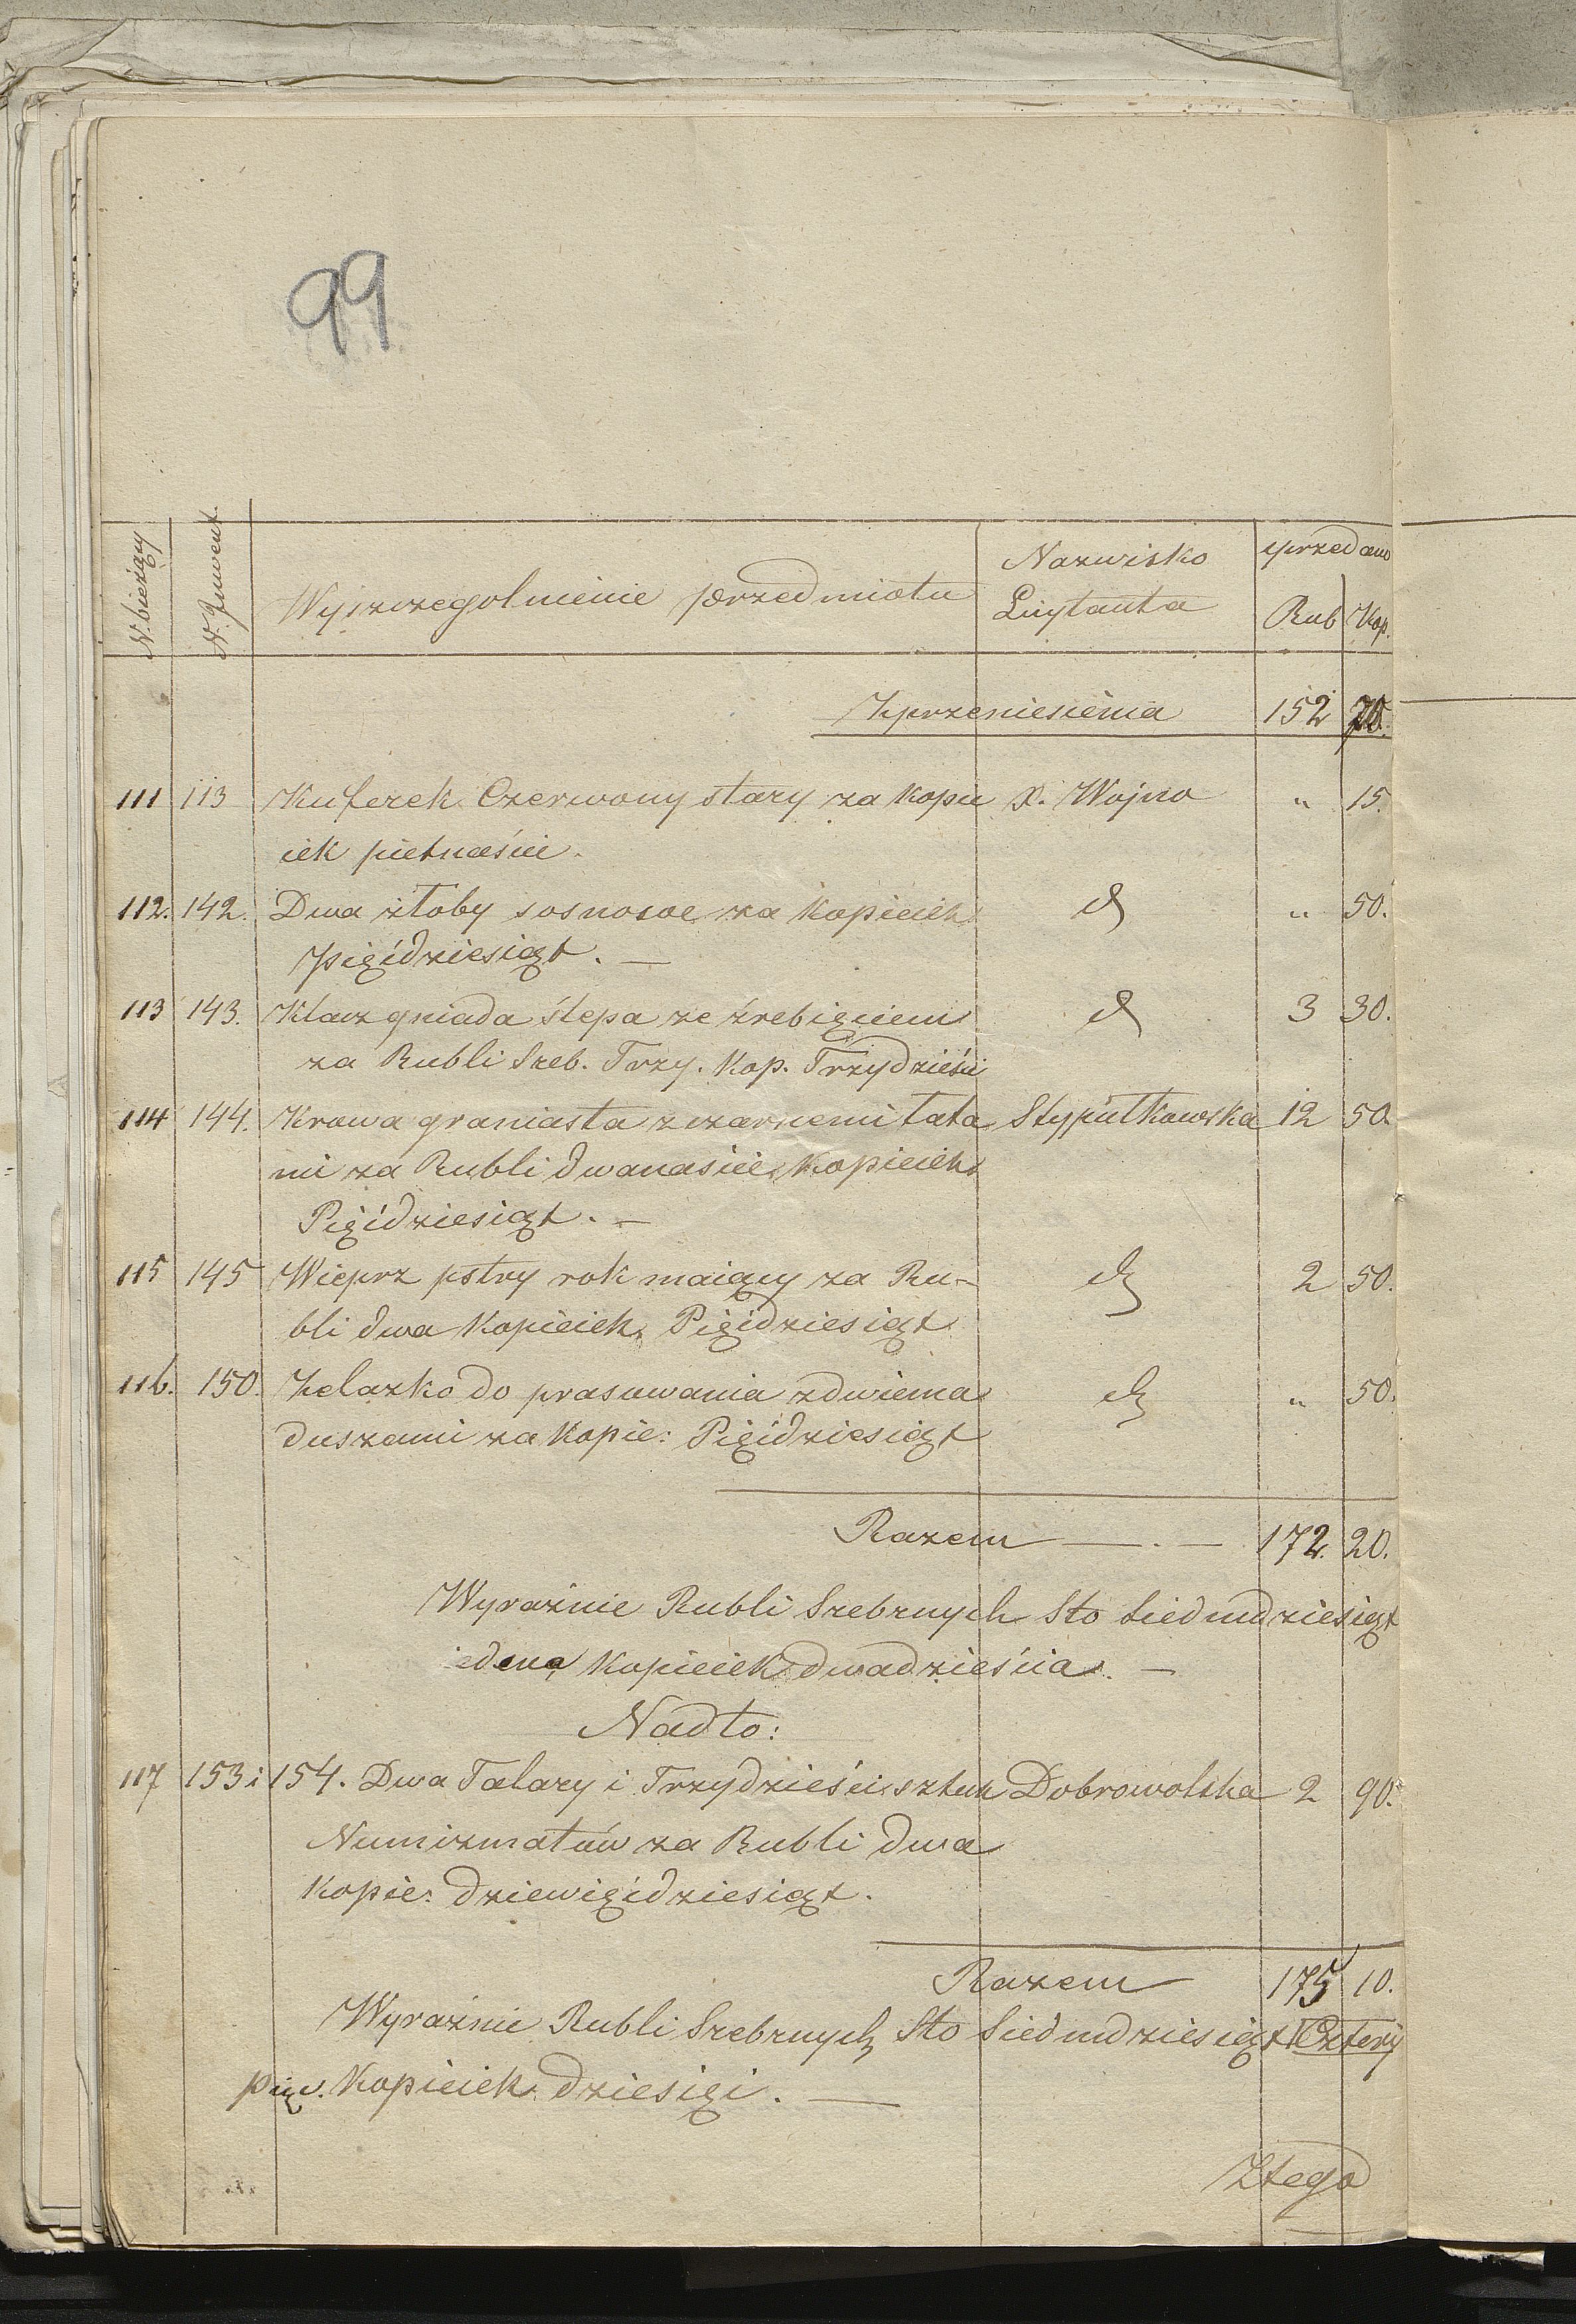 99
N. bieżący N. Inwent. Wyszczegolnienie przedmiotu Nazwisko Licytanta sprzedano
Rub Kop.
Z przeniesienia 152 75.
111 113 Kuferek Czerwony stary za kopie X. Wojno " 15.
iek pietnaście.
112. 142. Dwa żłoby sosnowe za kopieiek d " 50.
Pięćdziesiąt. —
113 143. Klacz gniada ślepa ze źrebięciem d 3 30.
za Rubli Sreb. Trzy. Kop. Trzydzieści
114 144. Krowa graniasta z czarnemi łata Stypułkowska 12 50.
mi za Rubli dwanaście kopieiek
Pięćdziesiąt. —
115 145 Wieprz pstry rok maiący za Ru- d 2 50.
bli dwa Kopieiek Pięćdziesiąt
116. 150. Zelazko do prasowania z dwiema d " 50.
duszami za Kopie: Pięćdziesiąt
Razem — . — 172. 20.
Wyraźnie Rubli Srebrnych Sto Siedmdziesiąt
Kopieiek dwadzieścia. —
Nadto:
117 153 i 154. Dwa Talary i Trzydzieści sztuk Dobrowolska 2 90.
Numizmatów za Rubli dwa
Kopie: dziewięćdziesiąt.
Razem 175 10.
Wyraźnie Rubli Srebrnych Sto Siedmdziesiąt Cztery
pięć. Kopieiek dziesięć. —
Z tego